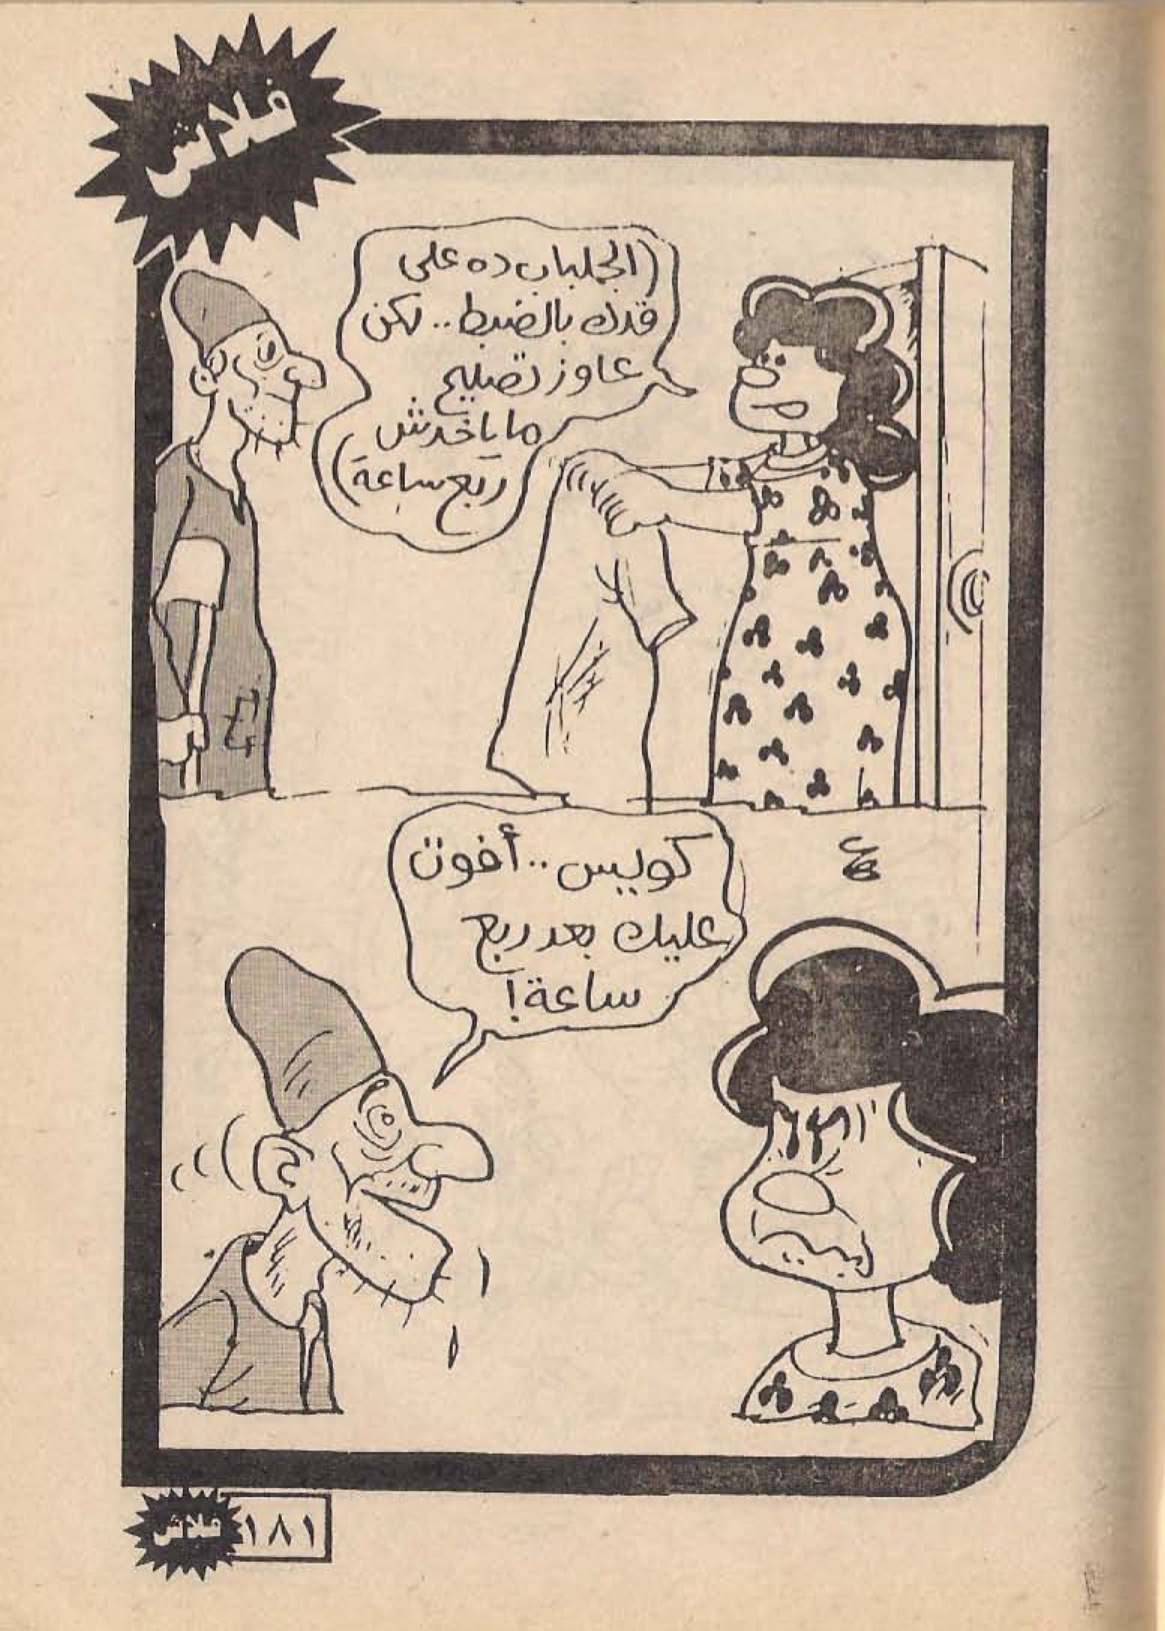 فلاش
الجلباب ده على
قدك بالضبط .. لكن
عاوز تصليح
ما ياخدش
ربع ساعة
كويس .. أفوت
عليك بعد ربع
ساعة!
١٨١
فلاش